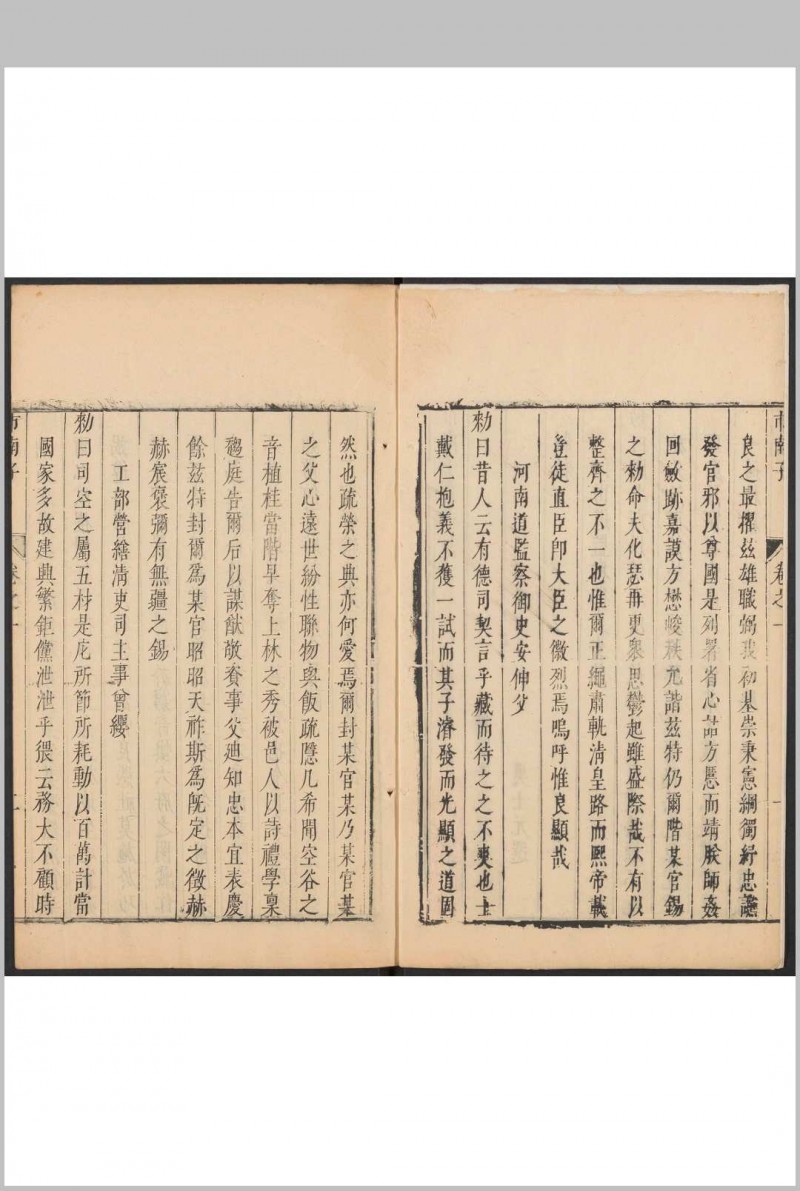 市南子 卷之一 一
良之最擢茲雄職弼我初基崇秉憲綱獨紓忠讜
發官邪以尊國是列署省心詰方慝而靖朕師姦
回斂跡嘉謨方懋峻秩允諧茲特仍爾階某官錫
之勅命夫化瑟再更衆思鬱起雖盛際哉不有以
整齊之不一也惟爾正繩肅軌清皇路而熙帝載
登徒直臣卽大臣之徽烈焉嗚呼惟良顯哉
河南道監察御史安伸父
勅曰昔人云有德司契言乎藏而待之之不爽也士
戴仁抱義不獲一試而其子濬發而光顯之道固
然也疏榮之典亦何愛焉爾封某官某乃某官某
之父心遠世紛性聯物與飯疏隱几希聞空谷之
音植桂當階早奪上林之秀被邑人以詩禮學稟
趨庭告爾后以謀猷敵養事父廸知忠本宜表慶
餘茲特封爾爲某官昭昭天祚斯爲旣定之徵赫
赫宸褒彌有無疆之錫
工部營繕清吏司主事曾纓
勅曰司空之屬五材是庀所節所耗動以百萬計當
國家多故建興繁鉅儻泄泄乎猥云務大不顧時
市南子 卷之一 二